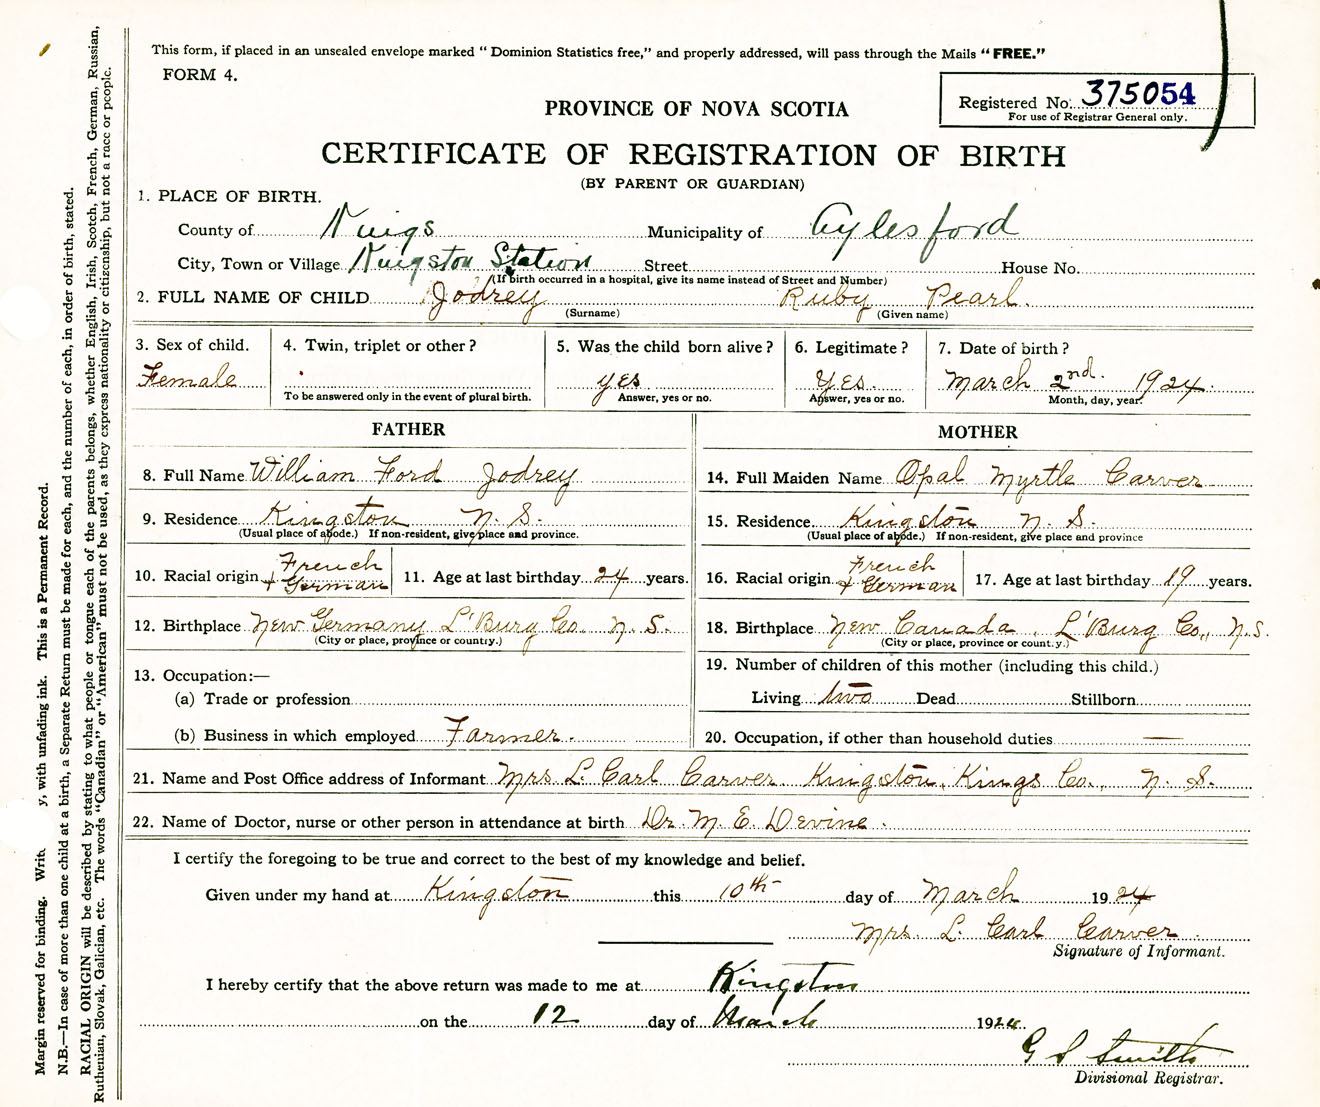 This form, if placed in an unsealed envelope marked "Dominion Statistics free," and properly addressed, will pass through the Mails "FREE."
FORM 4.
Registered No. 375054
For use of Registrar General only.
PROVINCE OF NOVA SCOTIA
CERTIFICATE OF REGISTRATION OF BIRTH
(BY PARENT OR GUARDIAN)
1. PLACE OF BIRTH.
County of Kings Municipality of Aylesford
City, Town or Village Kingston Station Street House No.
(If birth occurred in a hospital, give its name instead of Street and Number)
2. FULL NAME OF CHILD Jodrey Ruby Pearl.
(Surname) (Given name)
3. Sex of child. 4. Twin, triplet or other? 5. Was the child born alive? 6. Legitimate? 7. Date of birth?
Female yes Yes. March 2nd. 1924.
To be answered only in the event of plural birth. Answer, yes or no. Answer, yes or no. Month, day, year.
FATHER MOTHER
8. Full Name William Ford Jodrey 14. Full Maiden Name Opal Myrtle Carver
9. Residence Kingston N. S. 15. Residence Kingston N. S.
(Usual place of abode.) If non-resident, give place and province. (Usual place of abode.) If non-resident, give place and province
10. Racial origin French + German 11. Age at last birthday 24 years. 16. Racial origin French + German 17. Age at last birthday 19 years.
12. Birthplace New Germany L'Burg Co. N. S. 18. Birthplace New Canada, L'Burg Co., N.S.
(City or place, province or country.) (City or place, province or country.)
13. Occupation:— 19. Number of children of this mother (including this child.)
(a) Trade or profession Living two Dead Stillborn
(b) Business in which employed Farmer. 20. Occupation, if other than household duties —
21. Name and Post Office address of Informant Mrs. L. Carl Carver Kingston, Kings Co., N. S.
22. Name of Doctor, nurse or other person in attendance at birth Dr. M. E. Devine.
I certify the foregoing to be true and correct to the best of my knowledge and belief.
Given under my hand at Kingston this 10th day of March 1924
Mrs. L. Carl Carver.
Signature of Informant.
I hereby certify that the above return was made to me at Kingston
on the 12 day of March 1924
G S Smith
Divisional Registrar.
Margin reserved for binding. Writ y, with unfading ink. This is a Permanent Record.
N.B.—In case of more than one child at a birth, a Separate Return must be made for each, and the number of each, in order of birth, stated.
RACIAL ORIGIN will be described by stating to what people or tongue each of the parents belongs, whether English, Irish, Scotch, French, German, Russian,
Ruthenian, Slovak, Galician, etc. The words "Canadian" or "American" must not be used, as they express nationality or citizenship, but not a race or people.